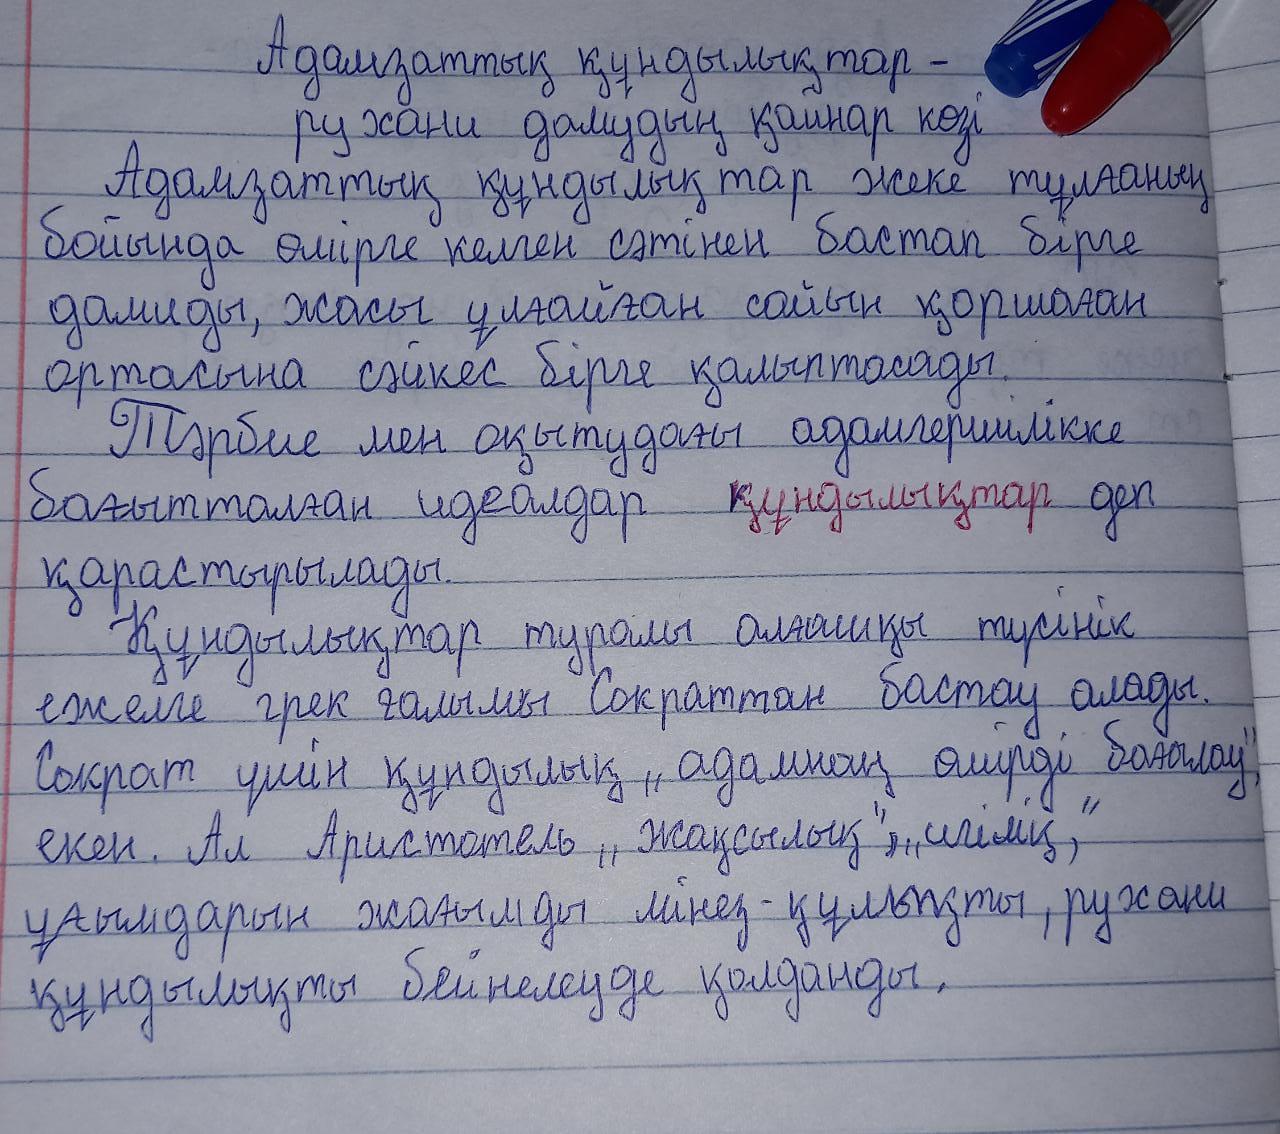 Адамзаттық құндылықтар -
рухани дамудың қайнар көзі
Адамзаттық құндылықтар жеке тұлғаның
бойында өмірге келген сәтінен бастап бірге
дамиды, жасы ұлғайған сайын қоршаған
ортасына сәйкес бірге қалыптасады.
Тәрбие мен оқытудағы адамгершілікке
бағытталған идеалдар құндылықтар деп
қарастырылады.
Құндылықтар туралы алғашқы түсінік
ежелге грек ғалымы Сократтан бастау алады.
Сократ үшін құндылық „адамның өмірді бағалау"
екен. Ал Аристотель „жақсылық", „игілік,"
ұғымдарын жағымды мінез-құлықты, рухани
құндылықты бейнелеуде қолданды.